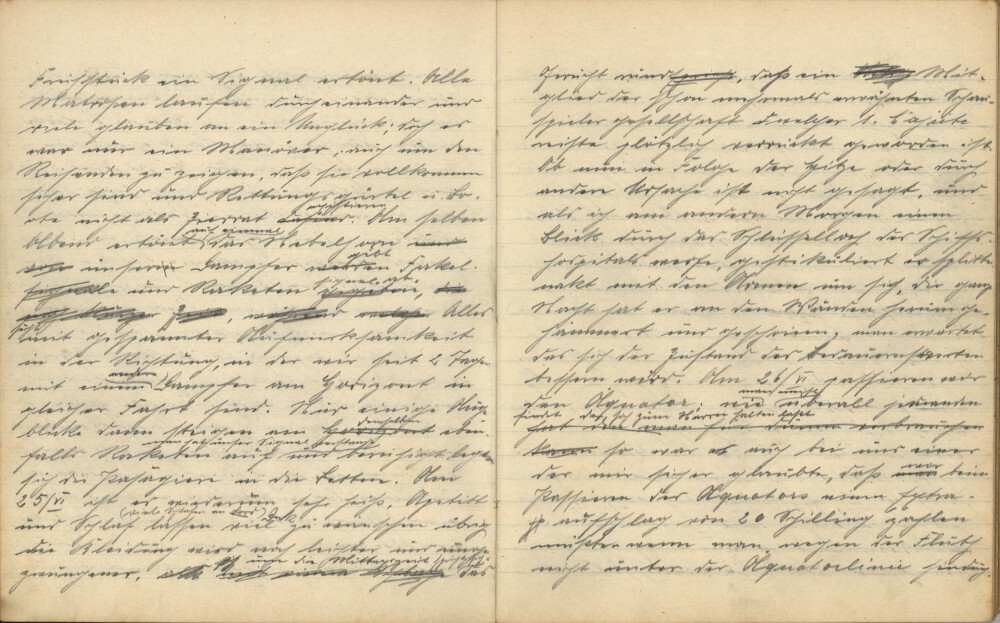 Frühstück ein Signal ertönt. Alle
Matrosen laufen durcheinander und
viele glauben an ein Unglück; doch es
war nur ein Manöver, auch um den
Reisenden zu zeigen, daß sie vollkommen
sicher sind und Rettungsgürtel u. Bo-
ote nicht als Zierrat existieren. Am selben
Abend ertönt auf einmal das Nebelhorn
unser Dampfer gibt Fakel-
und Raketen signale ab.
Alles
sieht mit gespannter Aufmerksamkeit
in der Richtung, in der wir seit 2 Tagen
mit einem andern Dampfer am Horizont in
gleicher Fahrt sind. Nur einige Aug-
blicke dann steigen am denselben eben-
falls Raketen auf
man hat unser Signal verstanden
und beruhigt legen
sich die Pasagiere in die Betten. Am
25/VI ist es wiederum sehr heiß, Apetitt
(viele schlafen an Bord) Deck
und Schlaf lassen viel zu wünschen übrig
die Kleidung wird noch leichter und unge-
zwungener. um die Mittagszeit das
Gerücht rund, daß ein Mit-
glied der schon mehrmals erwähnten Schau-
spieler gesellschaft welcher 1. Cajüte
reiste plötzlich verrückt geworden ist.
Ob nun in Folge der Hitze oder durch
andere Ursache ist nicht gesagt, und
als ich am andern Morgen einen
Blick durch das Schlüsselloch des Schiffs-
hospitals werfe, gestikuliert er splitter-
nakt mit den Armen um sich, die ganze
Nacht hat er an den Wänden herumge-
hämmert und geschrieen; man erwartet
das sich der Zustand des Bedauernswerten
bessern wird. Am 26/VI passieren wir
den Äquator; wie überall jemanden
findet der sich zum Narren halten läßt
so war auch bei uns einer
der mir sicher glaubte, daß man beim
Passieren des Äquators einen Extra-
aufschlag von 20 Schilling zahlen
müßte wenn man wegen der Fluth
nicht unter der Äquatorlinie hindurch